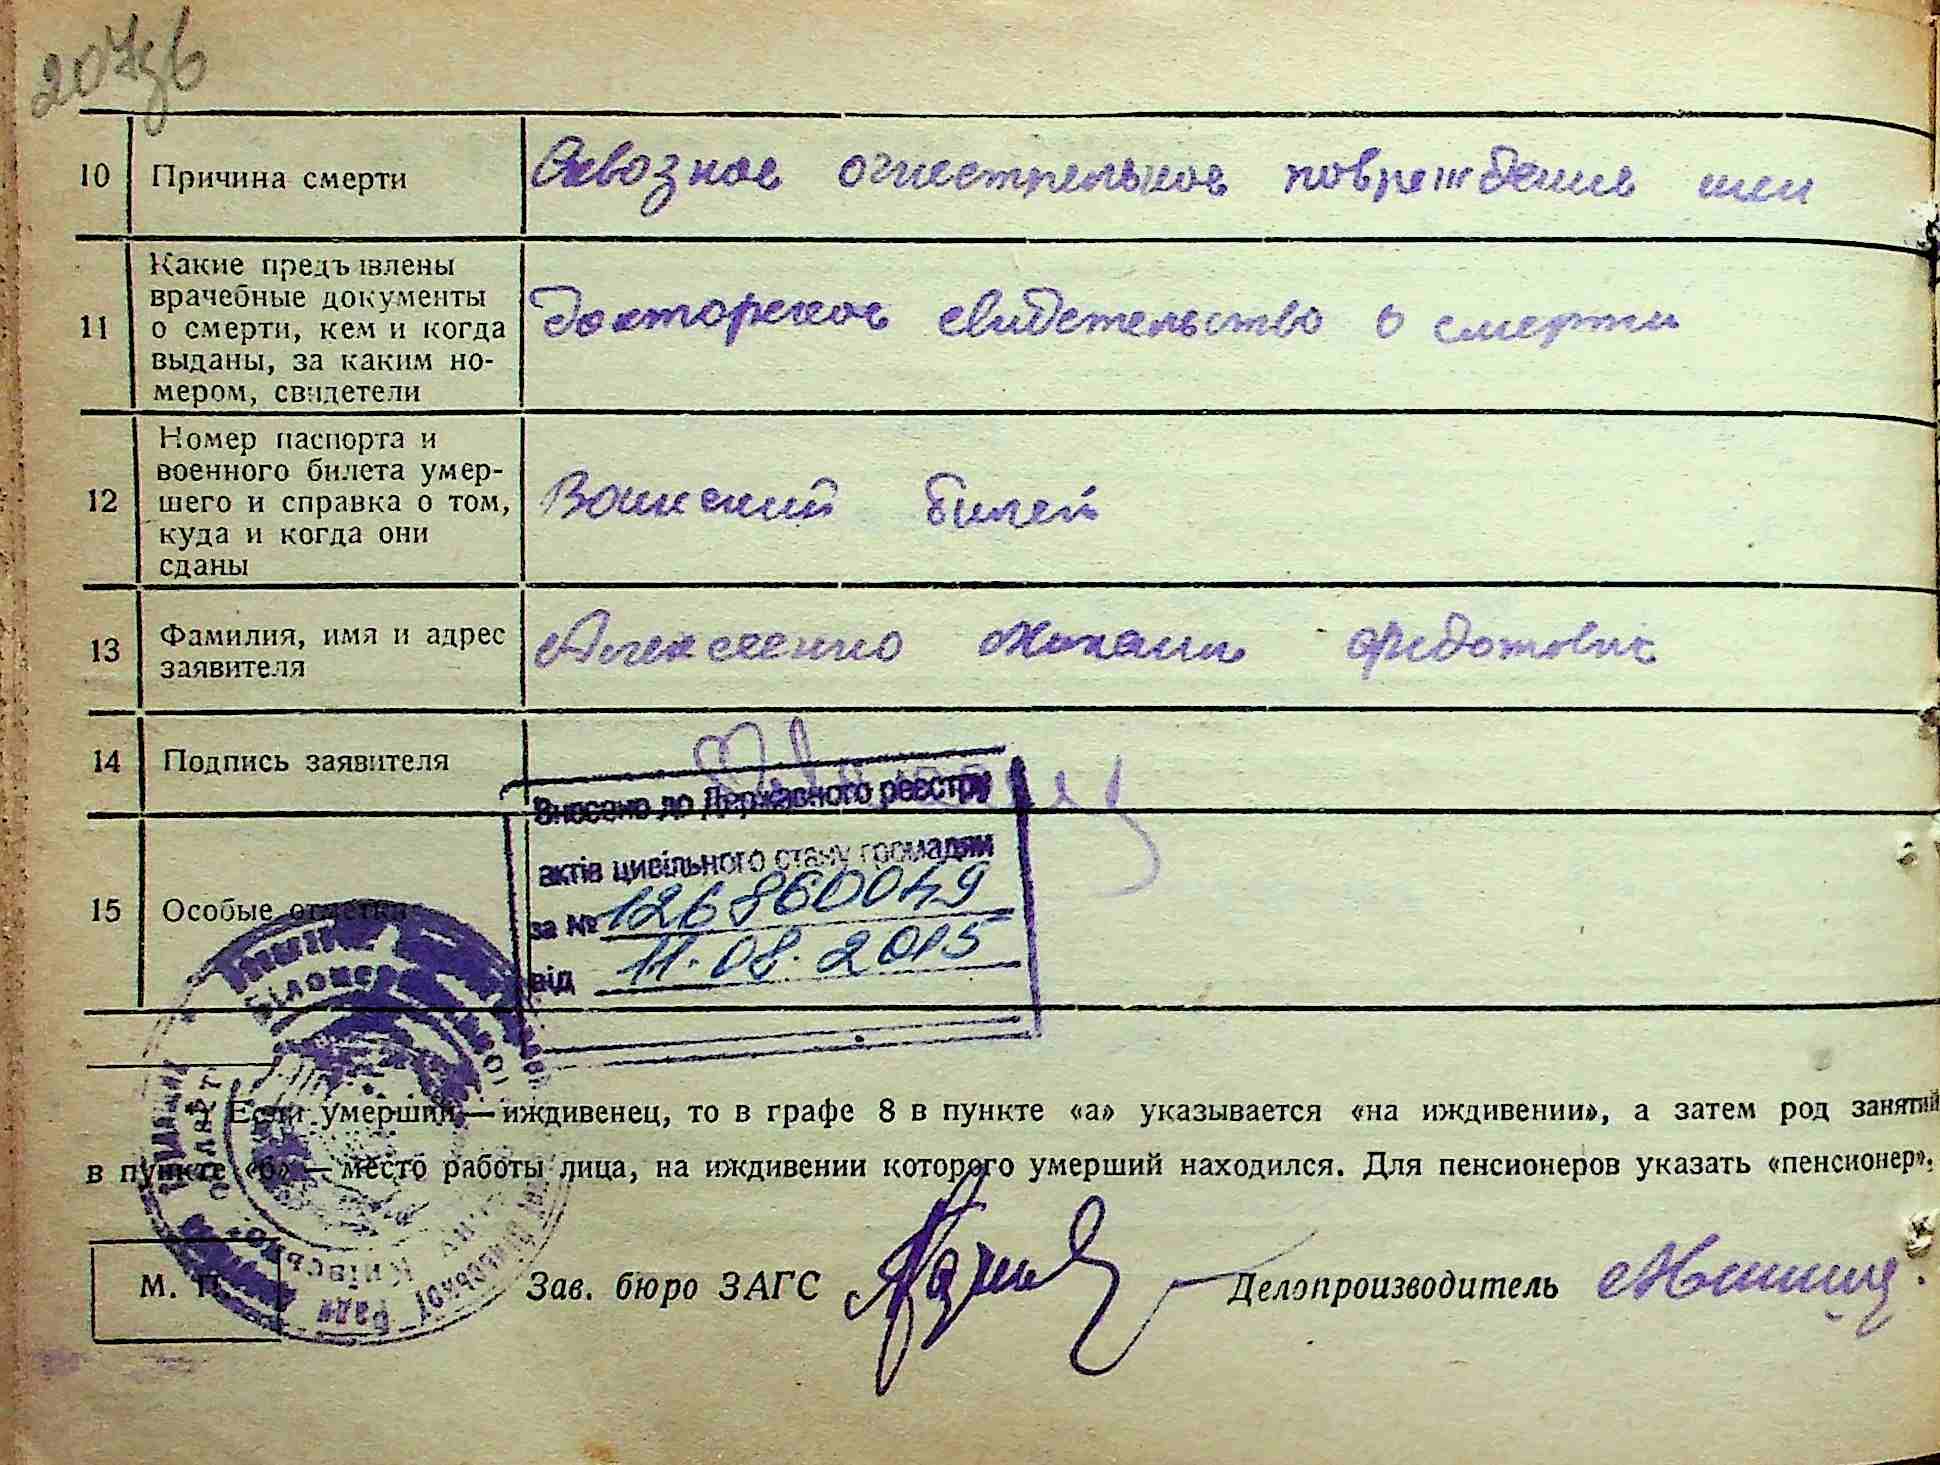 207зв
10 Причина смерти Сквозное огнестрельное повреждение шеи
11 Какие предъявлены
врачебные документы
о смерти, кем и когда
выданы, за каким но-
мером, свидетели
Докторское свидетельство о смерти
12 Номер паспорта и
военного билета умер-
шего и справка о том,
куда и когда они
сданы
Воинский билет
13 Фамилия, имя и адрес
заявителя
Алексеенко Михаил Федотович
14 Подпись заявителя
15 Особые отметки
Внесено до Державного реєстру
актів цивільного стану громадян
за № 126860049
від 11.08.2015
Если умерший — иждивенец, то в графе 8 в пункте «а» указывается «на иждивении», а затем род занятий
в пункте «б» — место работы лица, на иждивении которого умерший находился. Для пенсионеров указать «пенсионер».
М. П. Зав. бюро ЗАГС Делопроизводитель